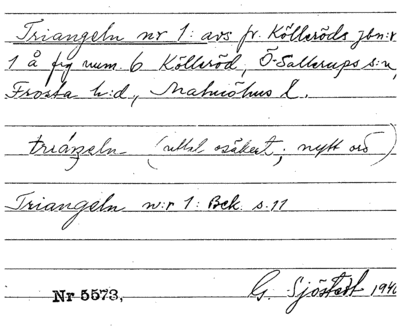 Triangeln nr 1: avs fr. Kölleröds jbn:r
1 å fig num. 6 Kölleröd, Ö-Sallerups s:n,
Frosta h:d, Malmöhus l.
triáŋeln (uttal osäkert; nytt ord)
Triangeln n:r 1: Bek. s. 11
Nr 5573, G. Sjöstedt 1940